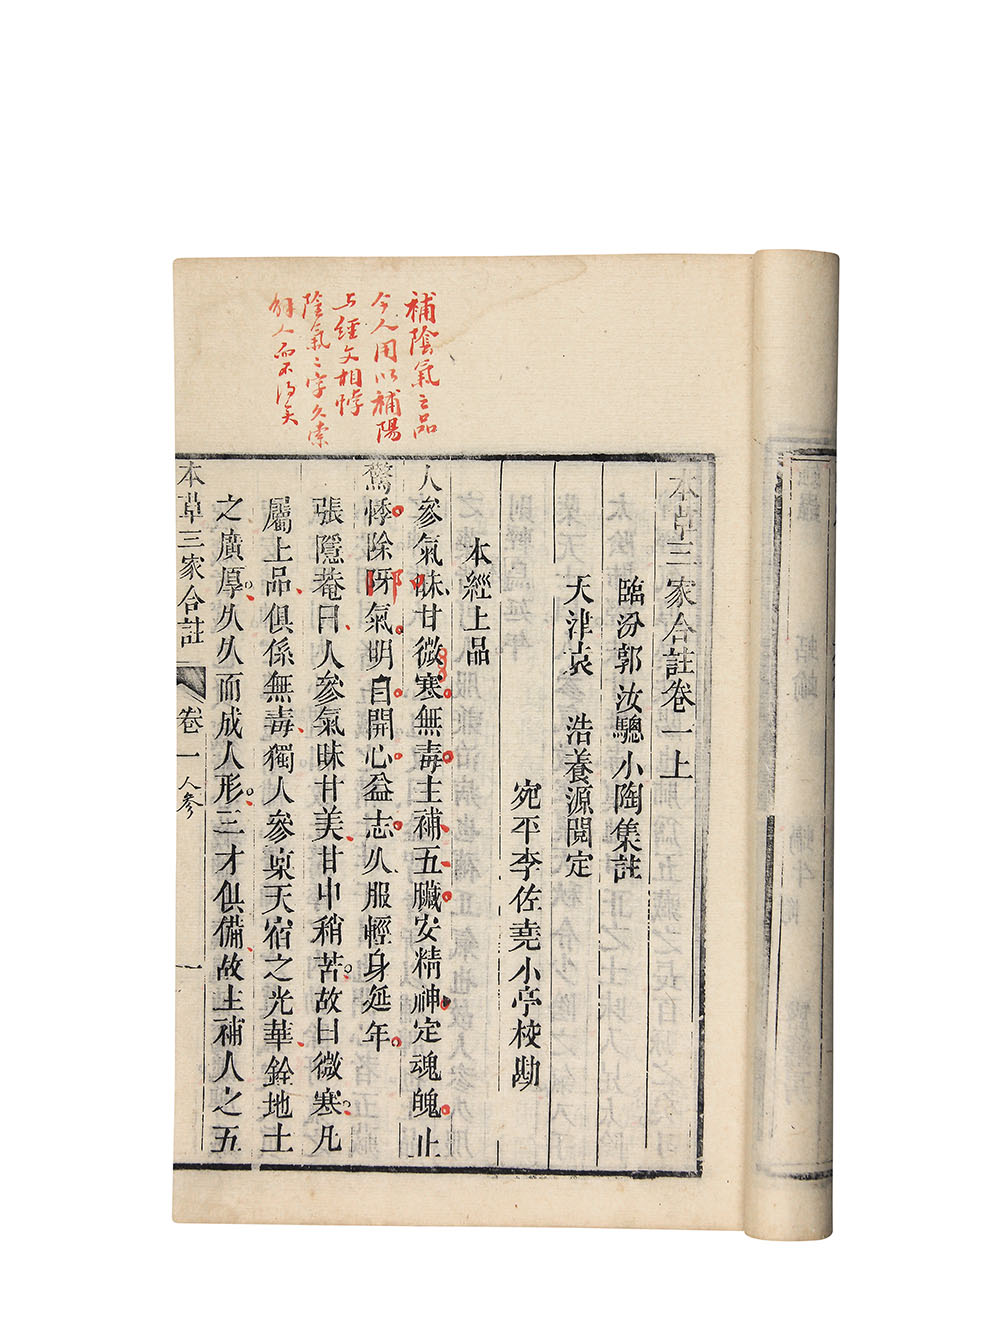 補陰氣之品
今人用以補陽
与經文相悖
陰氣二字久索
解人而不得矣
本草三家合註卷一上
臨汾郭汝驄小陶集註
天津袁　浩養源閱定
宛平李佐堯小亭校勘
本經上品
人參氣味甘微寒無毒主補五臟安精神定魂魄止
驚悸除邪氣明目開心益志久服輕身延年
張隱菴曰人參氣味甘美甘中稍苦故曰微寒凡
屬上品俱係無毒獨人參稟天宿之光華鍾地土
之廣厚久久而成人形三才俱備故主補人之五
本草三家合註　卷一　人參　一